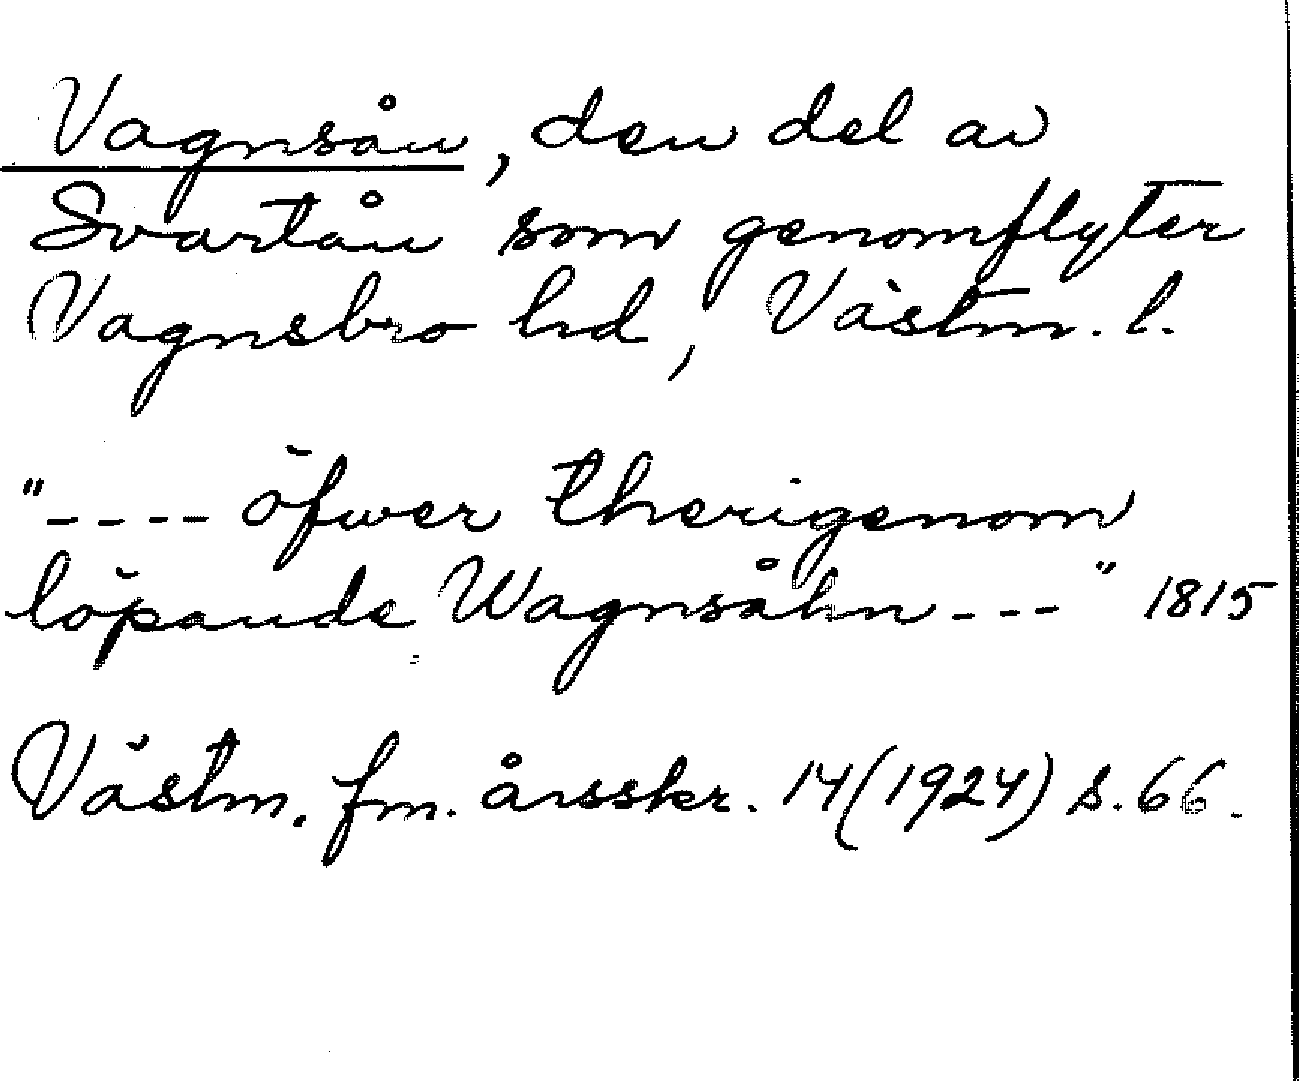 Vagnsån, den del av
Svartån som genomflyter
Vagnsbro hd, Västm. l.
"---- öfwer therigenom
löpande Wagnsåhn---" 1815
Västm. fm. årsskr. 14(1924) s. 66.